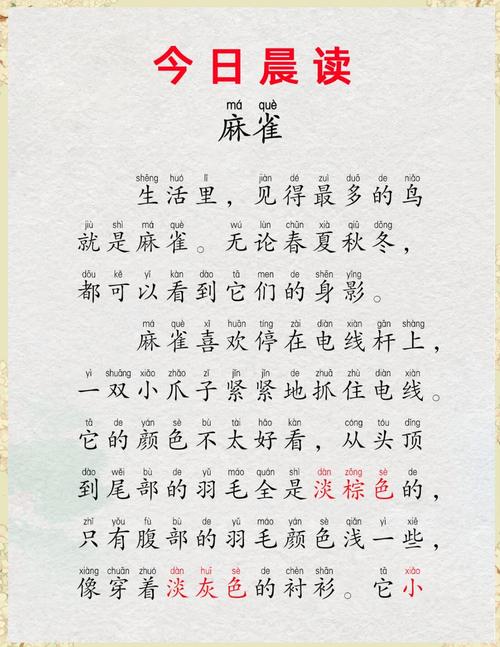 今日晨读
má què
麻雀
shēng huó lǐ jiàn dé zuì duō de niǎo
生活里，见得最多的鸟
jiù shì má què wú lùn chūn xià qiū dōng
就是麻雀。无论春夏秋冬，
dōu kě yǐ kàn dào tā men de shēn yǐng
都可以看到它们的身影。
má què xǐ huān tíng zài diàn xiàn gān shàng
麻雀喜欢停在电线杆上，
yì shuāng xiǎo zhǎo zi jǐn jǐn de zhuā zhù diàn xiàn
一双小爪子紧紧地抓住电线。
tā de yán sè bù tài hǎo kàn cóng tóu dǐng
它的颜色不太好看，从头顶
dào wěi bù de yǔ máo quán shì dàn zōng sè de
到尾部的羽毛全是淡棕色的，
zhǐ yǒu fù bù de yǔ máo yán sè qiǎn yì xiē
只有腹部的羽毛颜色浅一些，
xiàng chuān zhuó dàn huī sè de chèn shān tā xiǎo
像穿着淡灰色的衬衫。它小